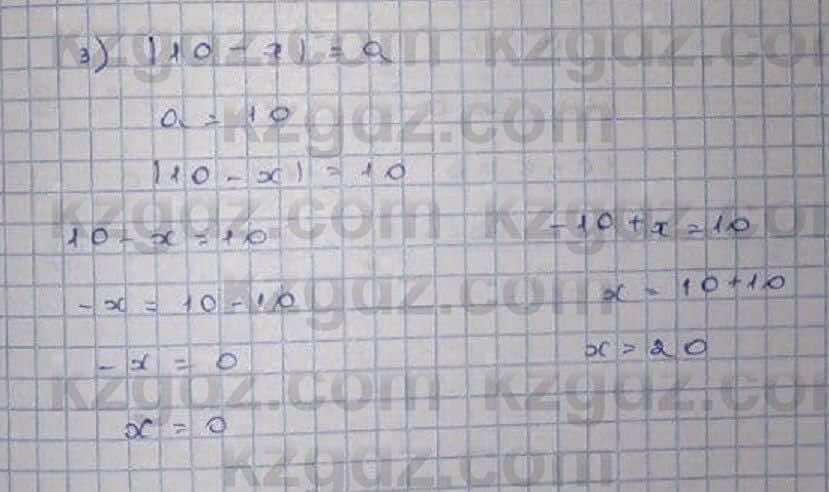 3) |10 - x| = a
a = 10
|10 - x| = 10
10 - x = 10
-10 + x = 10
-x = 10 - 10
x = 10 + 10
-x = 0
x = 20
x = 0
kzgdz.com
kzgdz.com
kzgdz.com
kzgdz.com
kzgdz.com
kzgdz.com
kzgdz.com
kzgdz.com
kzgdz.com